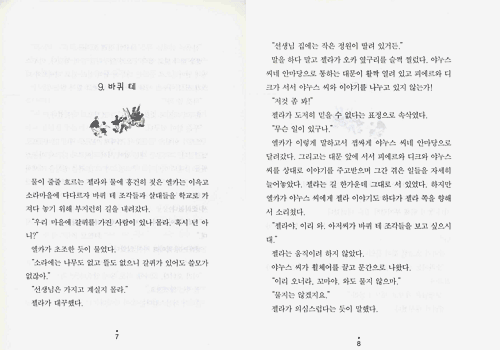 9. 바퀴 테
물이 줄줄 흐르는 젤라와 물에 흥건히 젖은 엘카는 이윽고
소라마을에 다다르자 바퀴 테 조각들과 살대들을 학교로 가
져다 놓기 위해 부지런히 길을 내려갔다.
"우리 마을에 갈퀴를 가진 사람이 있나 몰라. 혹시 넌 아
니?"
엘카가 초조한 듯이 물었다.
"소라에는 나무도 없고 뜰도 없으니 갈퀴가 있어도 쓸모가
없잖아."
"선생님은 가지고 계실지 몰라."
젤라가 대꾸했다.
7
"선생님 집에는 작은 정원이 딸려 있거든."
말을 하다 말고 젤라가 오카 옆구리를 슬쩍 찔렀다. 야누스
씨네 안마당으로 통하는 대문이 활짝 열려 있고 피에르와 디
르크가 서서 야누스 씨와 이야기를 나누고 있지 않는가!
"저것 좀 봐!"
젤라가 도저히 믿을 수 없다는 표정으로 속삭였다.
"무슨 일이 있구나."
엘카가 이렇게 말하고서 잽싸게 야누스 씨네 안마당으로
달려갔다. 그리고는 대문 앞에 서서 피에르와 디르크와 야누스
씨를 상대로 이야기를 주고받으며 그간 겪은 일들을 자세히
늘어놓았다. 젤라는 길 한가운데 그대로 서 있었다. 하지만
엘카가 야누스 씨에게 젤라 이야기도 하다가 젤라 쪽을 향해
서 소리쳤다.
"젤라야, 이리 와. 아저씨가 바퀴 테 조각들을 보고 싶으시
대."
젤라는 움직이려 하지 않았다.
야누스 씨가 휠체어를 끌고 문간으로 나왔다.
"이리 오너라, 꼬마야. 와도 물지 않으마."
"물지는 않겠지요."
젤라가 의심스럽다는 듯이 말했다.
8